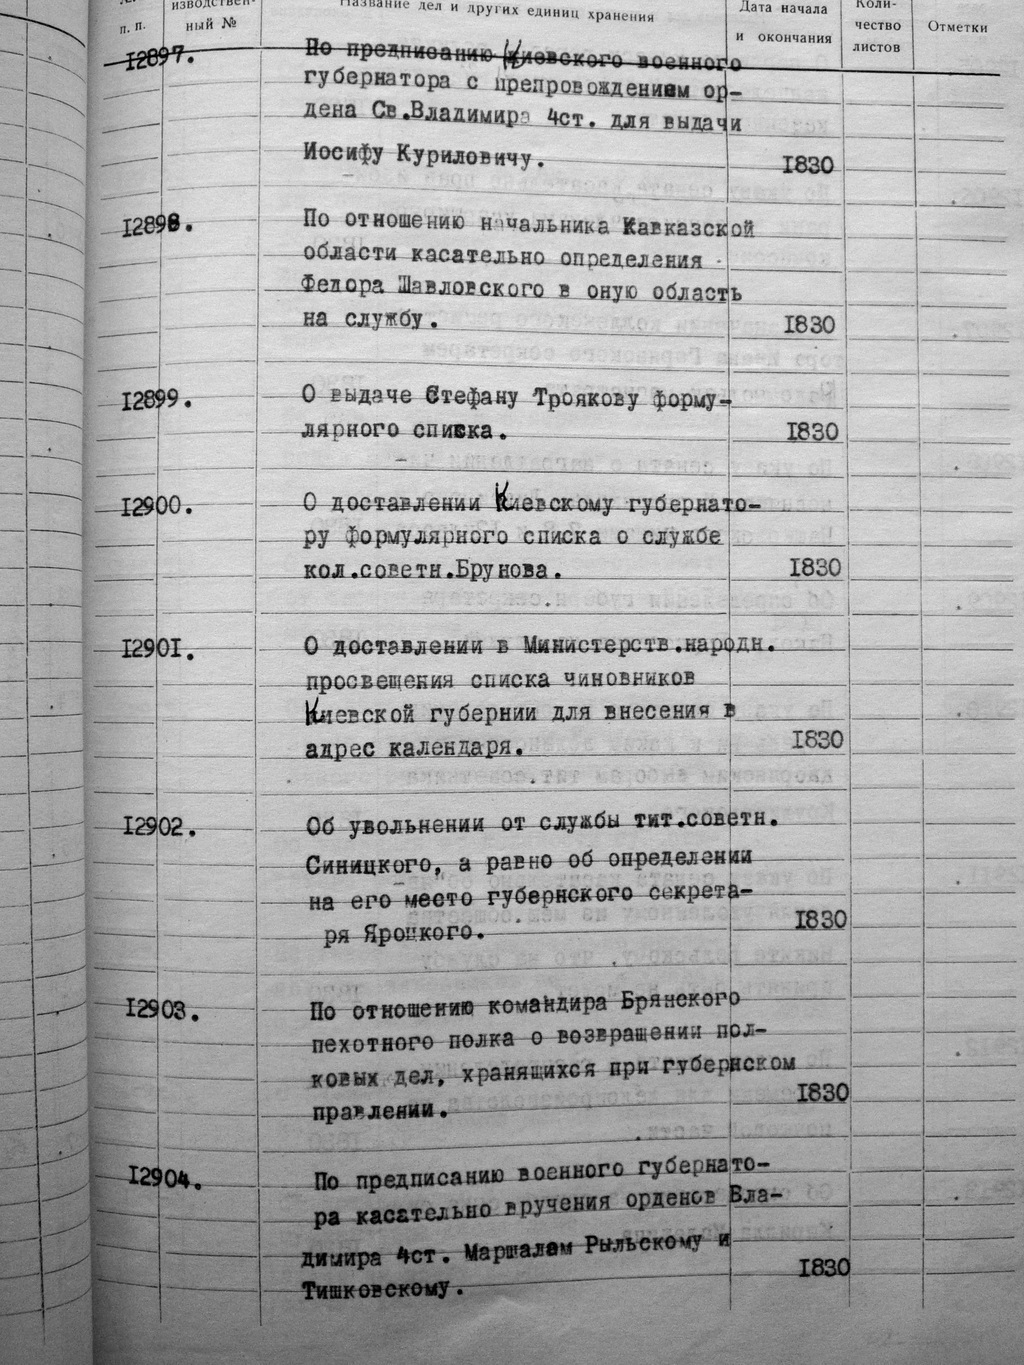 изводствен-
ный №
п. п.
Название дел и других единиц хранения
Дата начала
и окончания
Коли-
чество
листов
Отметки
12897.
По предписанию Киевского военного
губернатора с препровождением ор-
дена Св.Владимира 4ст. для выдачи
Иосифу Куриловичу.
1830
12898.
По отношению начальника Кавказской
области касательно определения
Федора Шавловского в оную область
на службу.
1830
12899.
О выдаче Стефану Троякову форму-
лярного списка.
1830
12900.
О доставлении Киевскому губернато-
ру формулярного списка о службе
кол.советн.Брунова.
1830
12901.
О доставлении в Министерств.народн.
просвещения списка чиновников
Киевской губернии для внесения в
адрес календаря.
1830
12902.
Об увольнении от службы тит.советн.
Синицкого, а равно об определении
на его место губернского секрета-
ря Яроцкого.
1830
12903.
По отношению командира Брянского
пехотного полка о возвращении пол-
ковых дел, хранящихся при губернском
правлении.
1830
12904.
По предписанию военного губернато-
ра касательно вручения орденов Вла-
димира 4ст. Маршалам Рыльскому и
Тишковскому.
1830